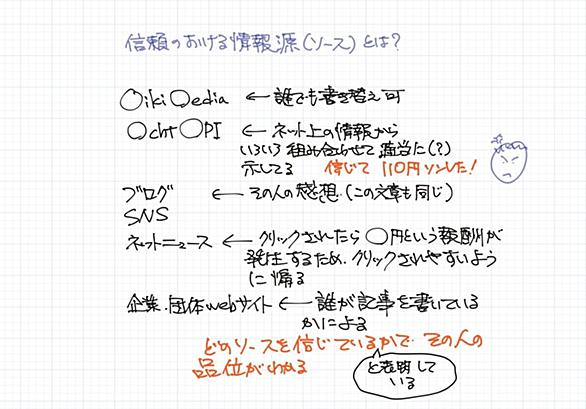 信頼のおける情報源(ソース)とは?
○iki○edia ← 誰でも書き替え可
○cht○PI ← ネット上の情報から
いろいろ組み合わせて適当に(?)
示してる 信じて110円ソンした!
ブログ ← その人の感想(この文章も同じ)
SNS
ネットニュース ← クリックされたら○円という報酬が
発生するため、クリックされやすいよう
に煽る
企業・団体webサイト ← 誰が記事を書いている
かによる
どのソースを信じているかで、その人の
品位がわかる
と表明して
いる